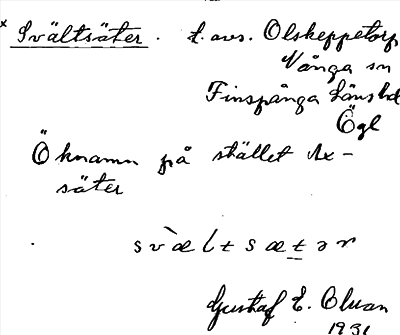 x Svältsäter. t. avs. Olskeppetorp
Vånga sn
Finspånga länshd
Ögl
Öknamn på stället Ax-
säter
svæltsætər
Gustaf E. Olsson
1931